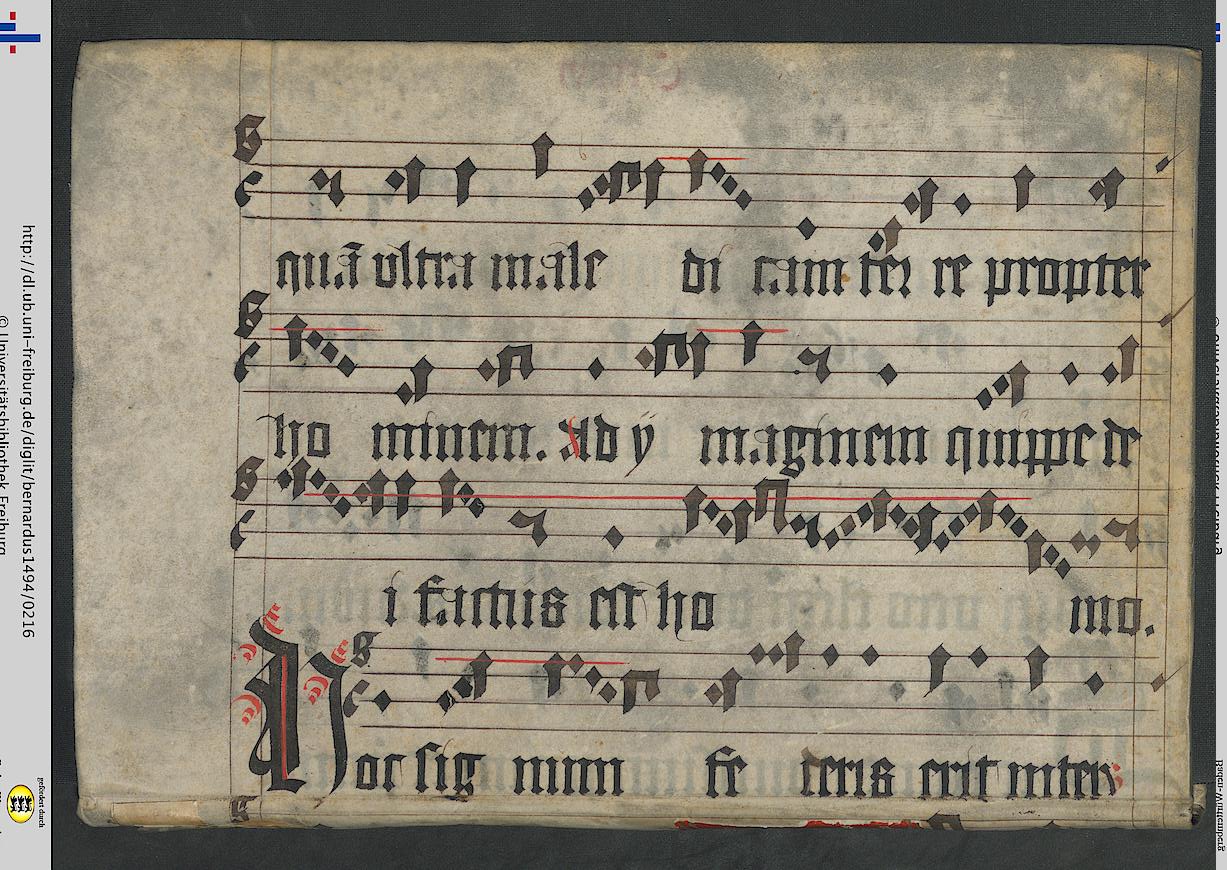 quā ultra male di cam terre propter
ho minem. Ad y maginem quippe de
i factus est ho mo.
Hoc sig num fe deris erit inter
http://dl.ub.uni-freiburg.de/diglit/bernardus1494/0216
© Universitätsbibliothek Freiburg
gefördert durch